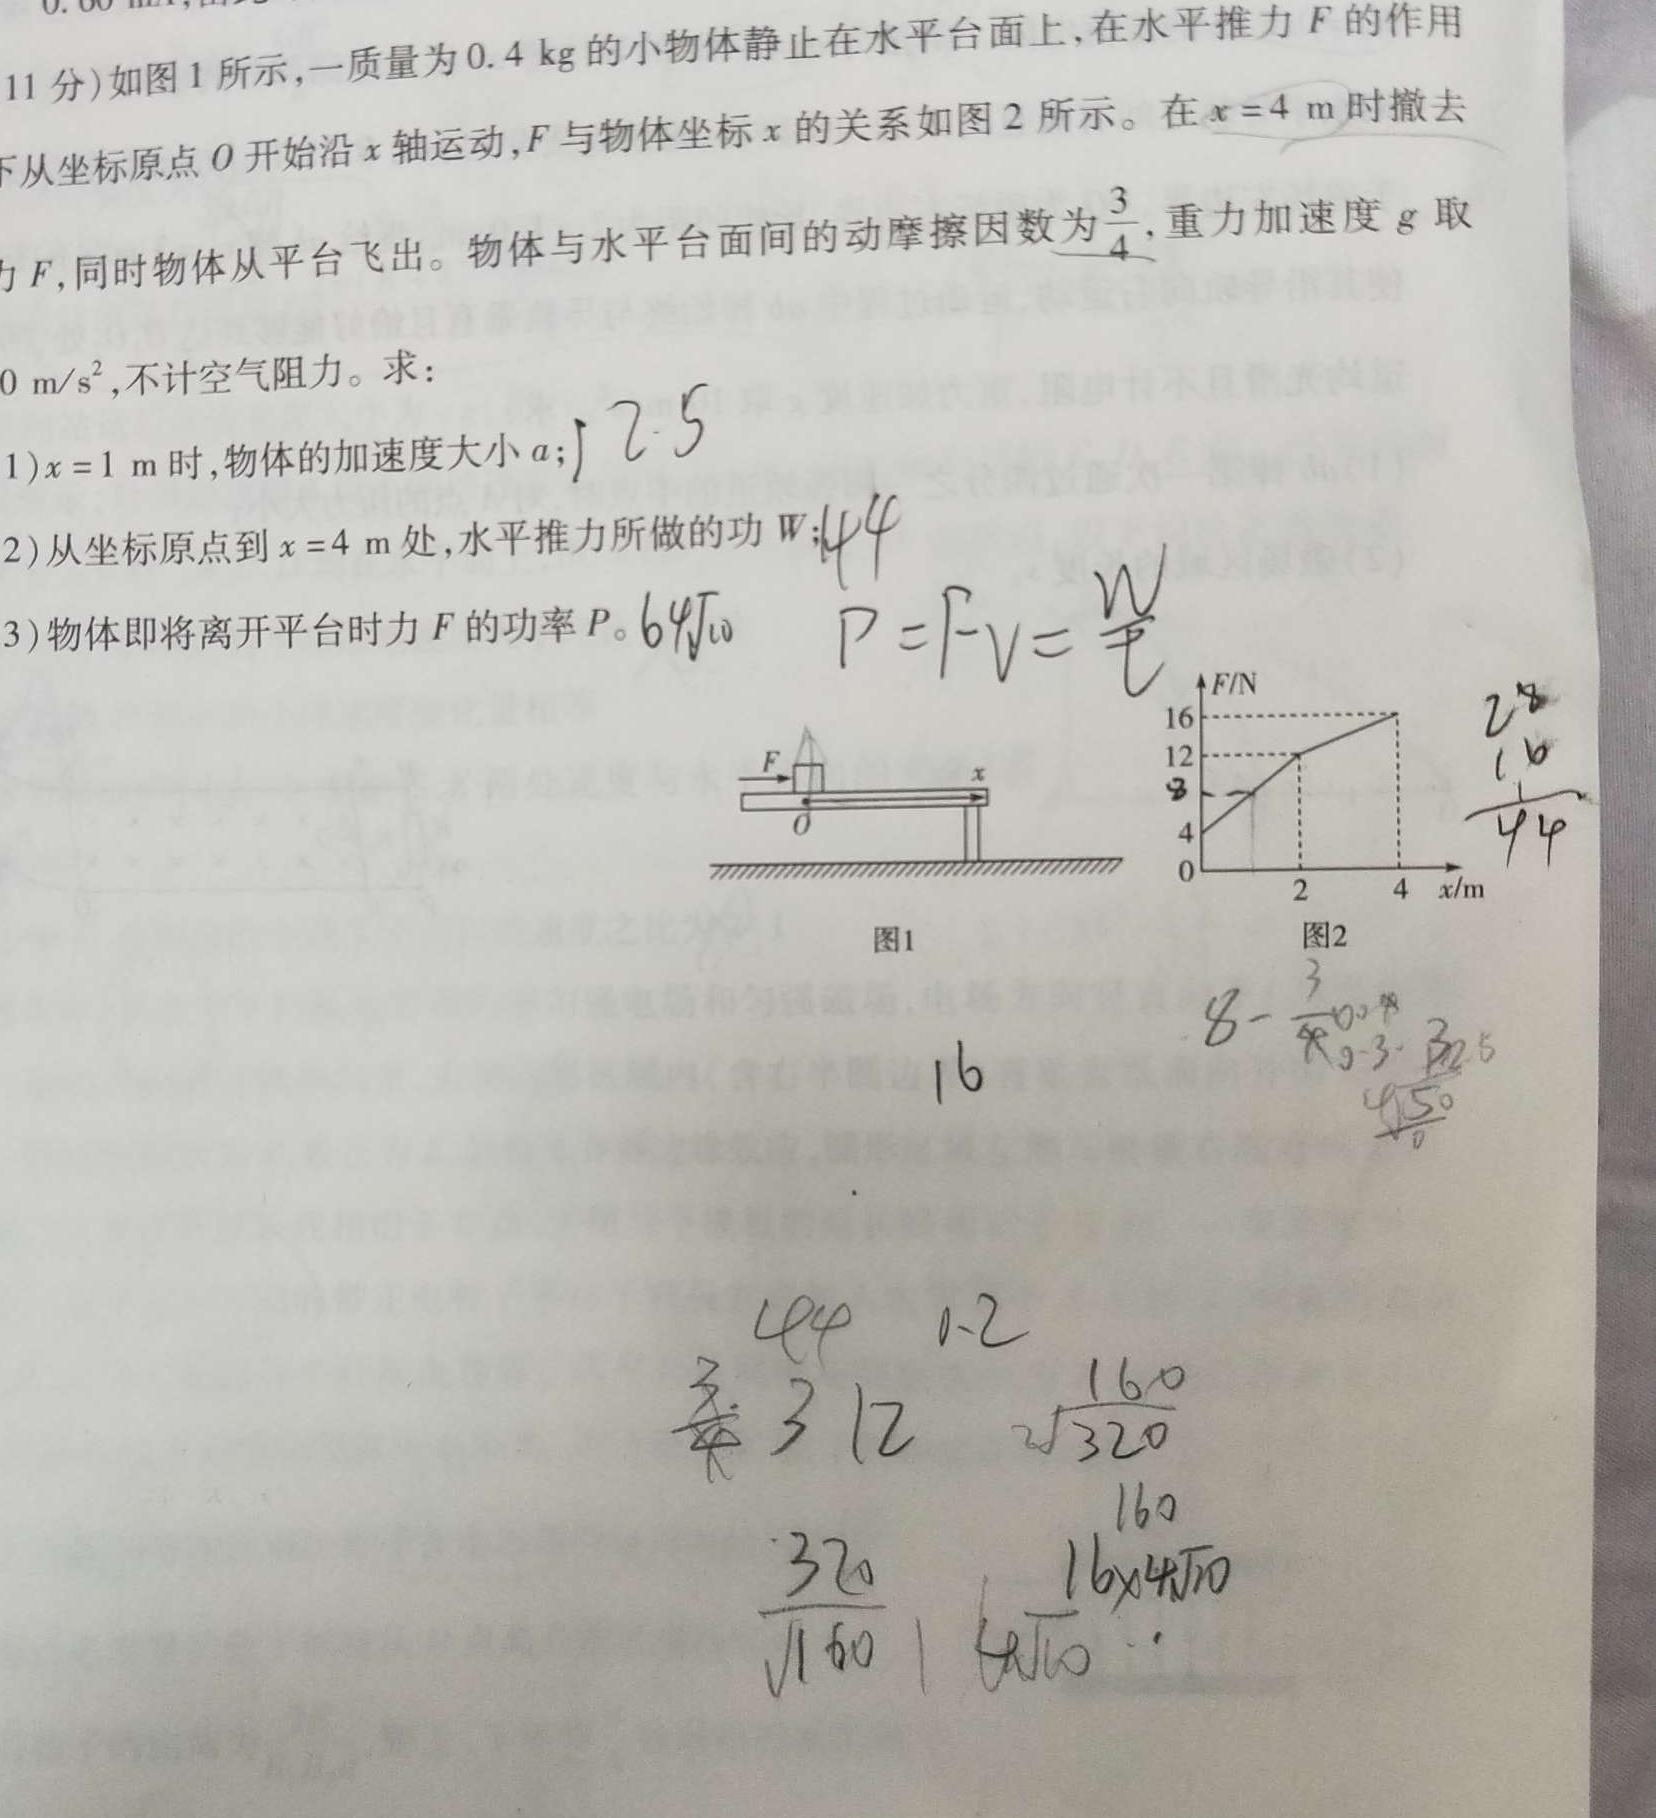 11 分)如图 1 所示,一质量为 0.4 kg 的小物体静止在水平台面上,在水平推力 F 的作用
下从坐标原点 O 开始沿 x 轴运动,F 与物体坐标 x 的关系如图 2 所示。在 x=4 m 时撤去
力 F,同时物体从平台飞出。物体与水平台面间的动摩擦因数为 3/4,重力加速度 g 取
0 m/s²,不计空气阻力。求:
1)x=1 m 时,物体的加速度大小 a; 12.5
2)从坐标原点到 x=4 m 处,水平推力所做的功 W; 44
3)物体即将离开平台时力 F 的功率 P。 64√10
P=Fv=W/t
F
x
O
图1
F/N
16
12
8
4
0
2 4 x/m
图2
28
16
44
8-
16
44 1.2
3 12
160
2√320
160
320/√160
16×4√10
4√10